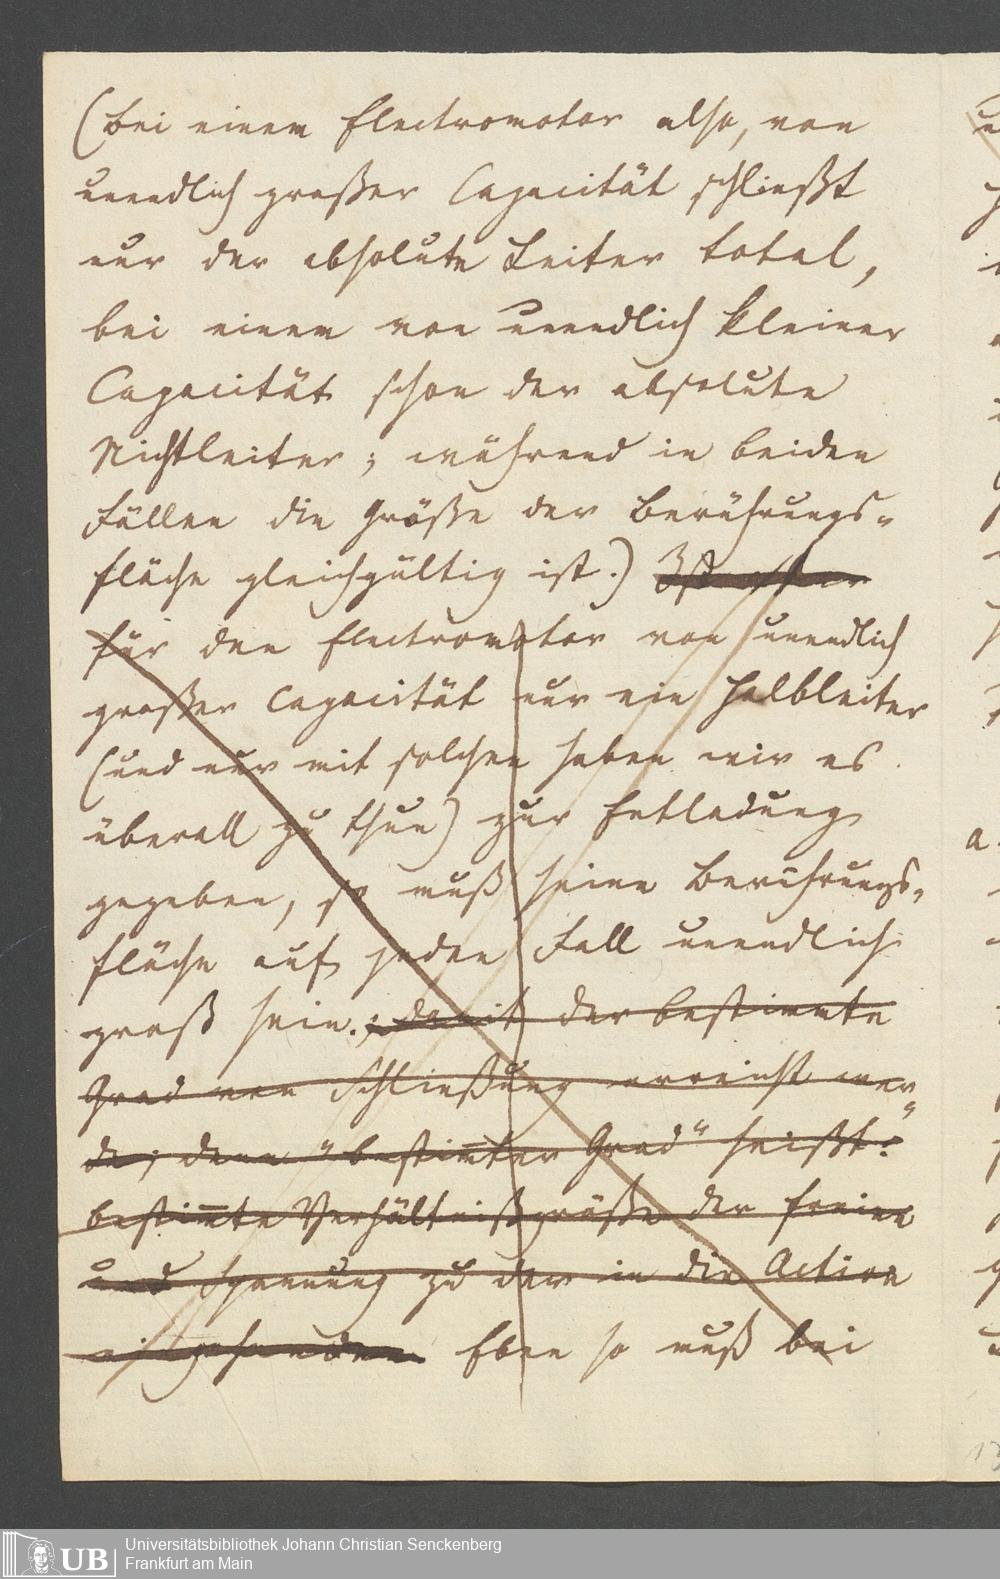 (bei einem Electromotor also, von
unendlich großer Capacität schließt
nur der absolute Leiter total,
bei einem von unendlich kleiner
Capacität schon der absolute
Nichtleiter; während in beiden
Fällen die Größe der Berührungs-
fläche gleichgültig ist.) Ist aber
für den Electromotor von unendlich
großer Capacität nur ein Halbleiter
(und nur mit solchen haben wir es
überall zu thun) zur Entladung
gegeben, so muß seine Berührungs-
fläche auf jeden Fall unendlich
groß sein.; damit der bestimmte
Grad von Schließung erreicht wer-
de; denn "bestimter Grad" heißt:
bestimte Verhältnißgröße der freien
und Spannung zu der in die Action
eingehenden Eben so muß bei
a.
UB
Universitätsbibliothek Johann Christian Senckenberg
Frankfurt am Main